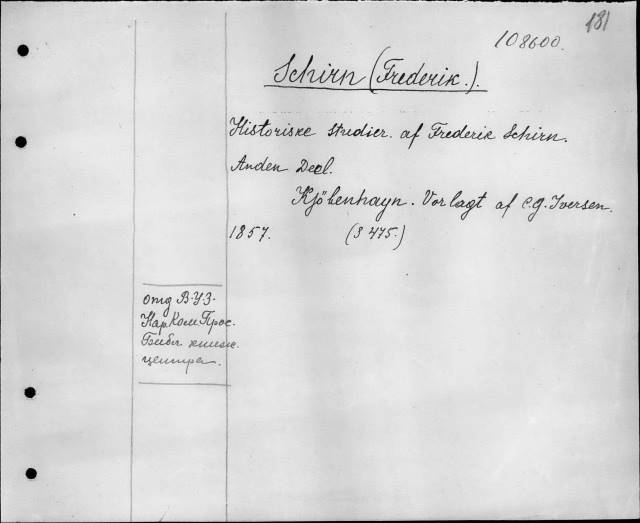 131
108600.
Schirn (Frederik.).
Historiske studier. af Frederik Schirn.
Anden Deel.
Kjöbenhayn. Vorlagt af C.G. Iversen.
1857. (S 475.)
отд В.УЗ.
НарКомПрос.
Библ. книж.
центра.